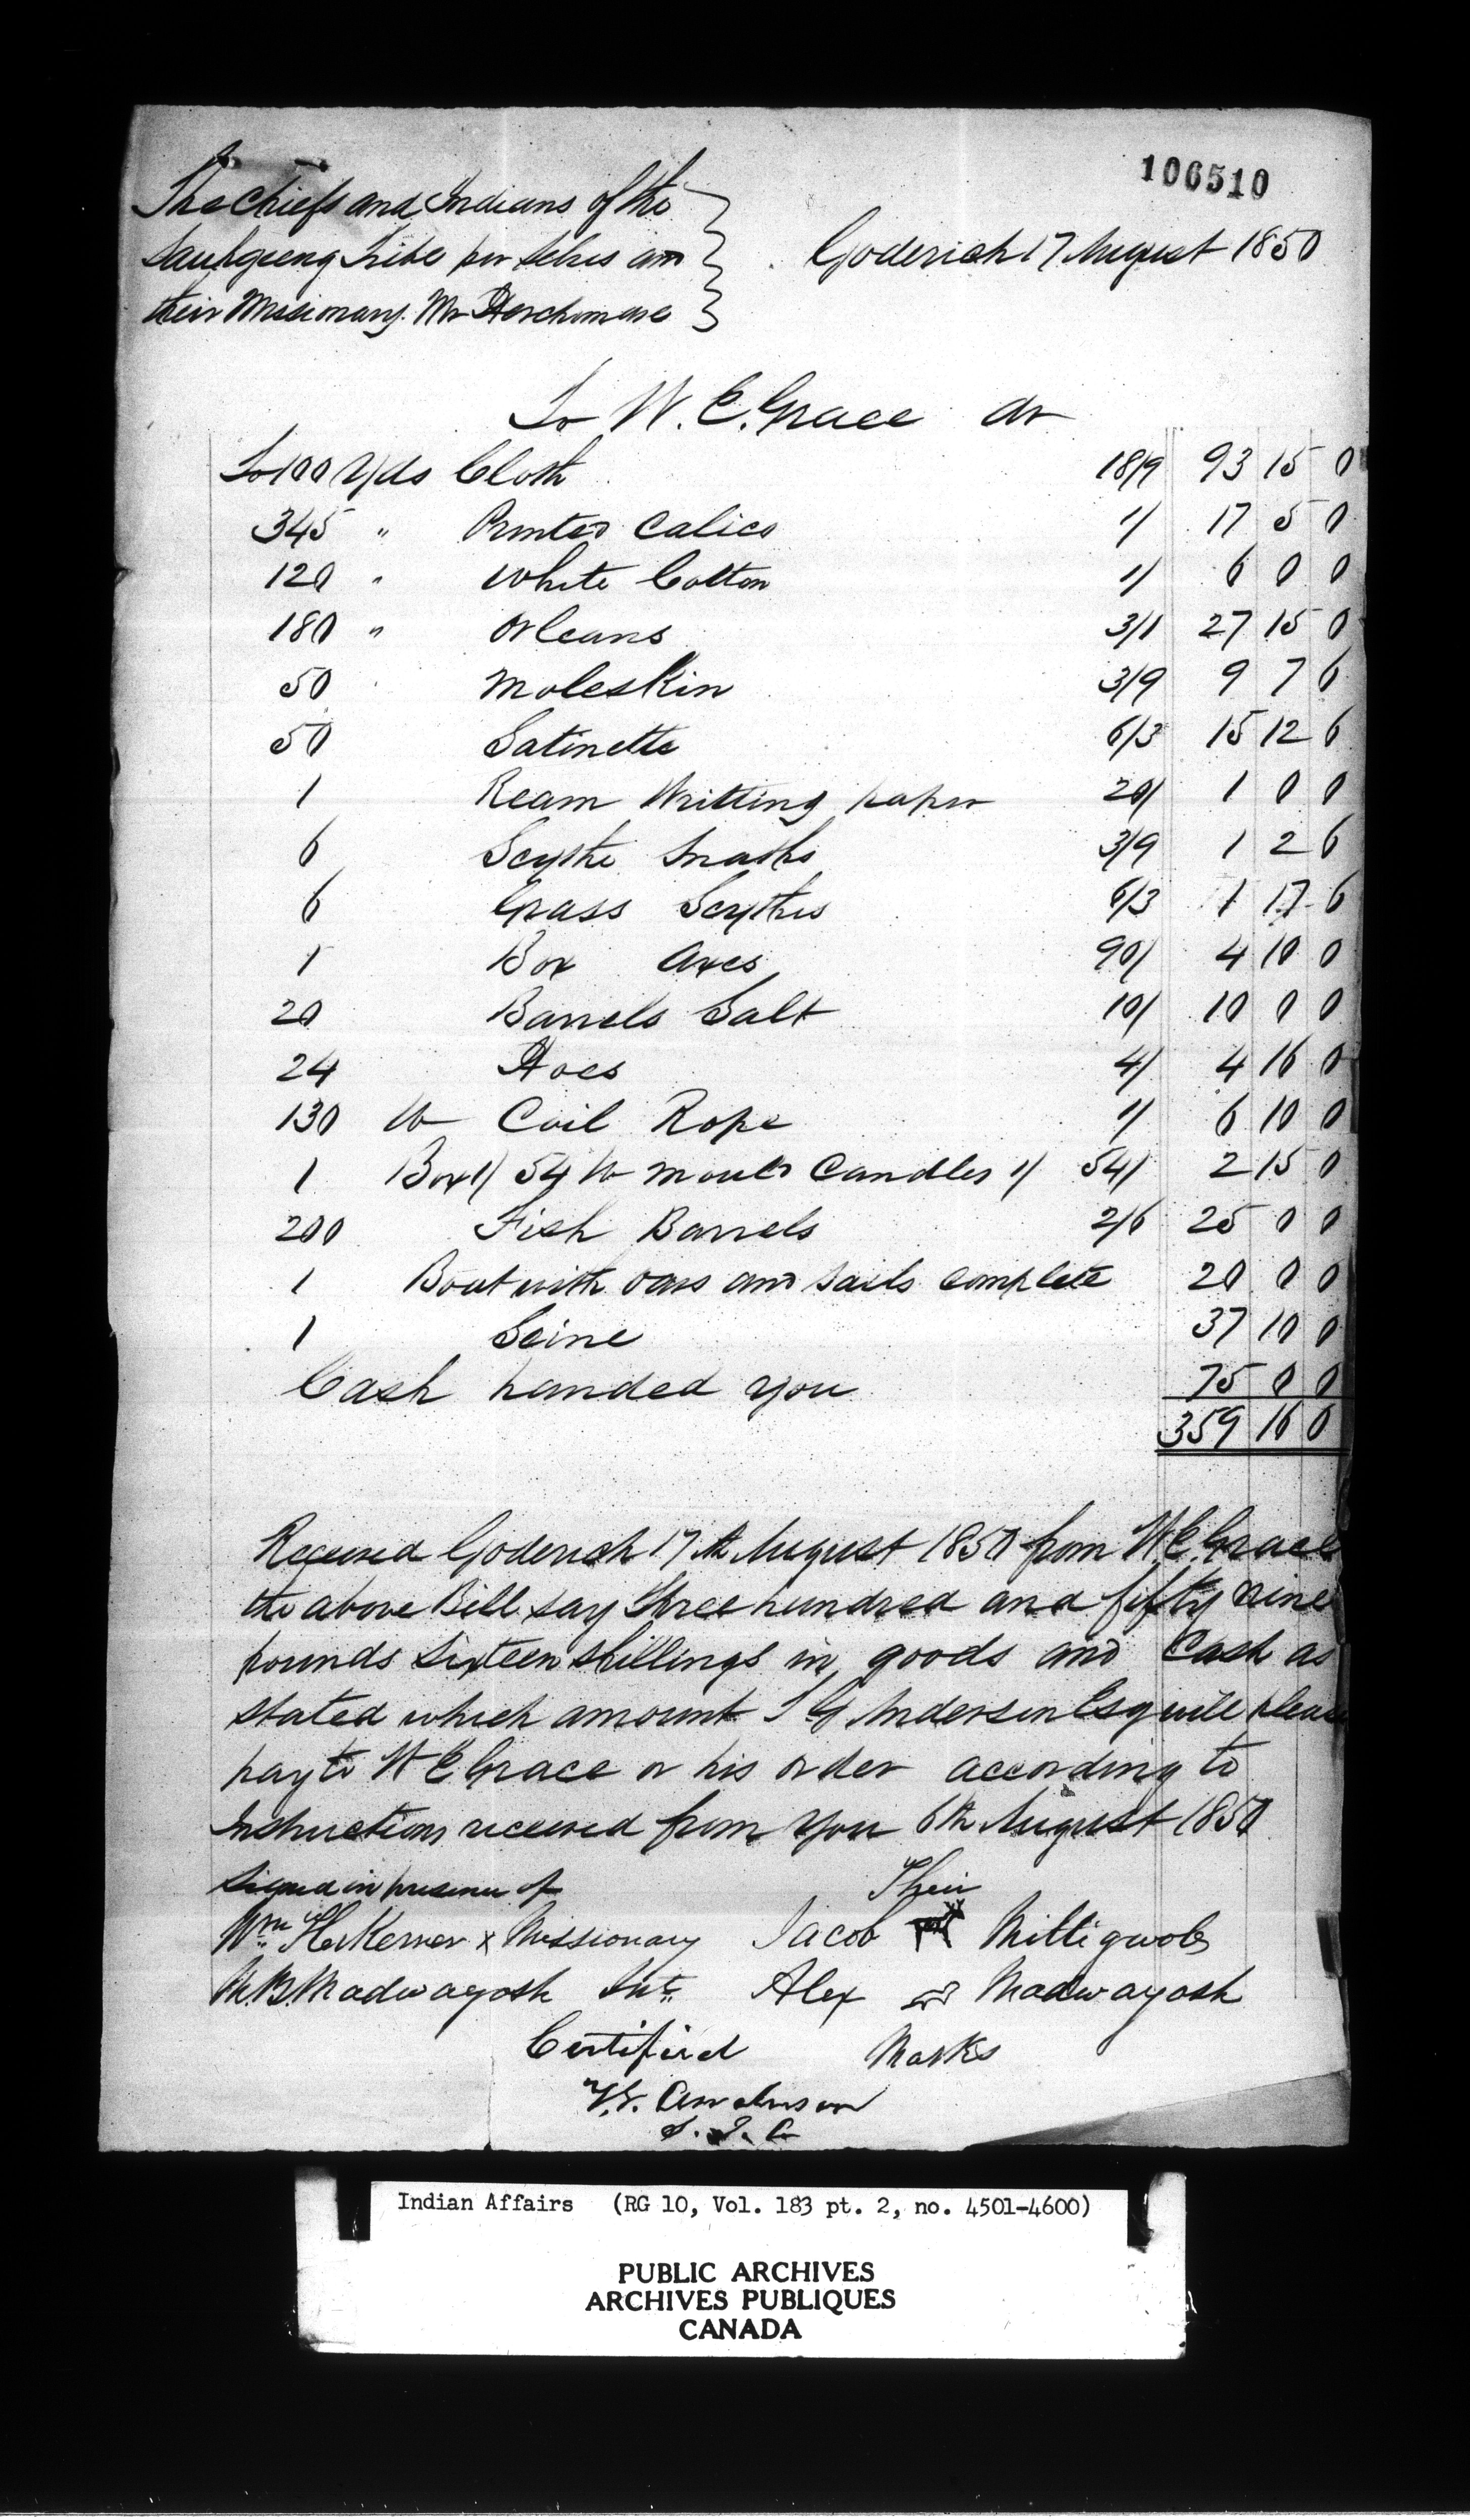 106510
The Chiefs and Indians of the
Saugeeng Tribe per selves and
their Missionary Mr Herchimare
Goderich 17 August 1850
To W. E. Grace Dr
To 100 Yds Cloth 18/9 93 15 0
345 " Printed Calico 1/ 17 5 0
120 " White Cotton 1/ 6 0 0
180 " Orleans 3/1 27 15 0
50 Moleskin 3/9 9 7 6
50 Satinette 6/3 15 12 6
1 Ream Writting paper 20/ 1 0 0
6 Scythe Snaths 3/9 1 2 6
6 Grass Scythes 6/3 1 17 6
1 Box Axes 90/ 4 10 0
20 Barrels Salt 10/ 10 0 0
24 Hoes 4/ 4 16 0
130 lb Coil Rope 1/ 6 10 0
1 Box 1/ 54 lb Mould Candles 1/ 54/ 2 15 0
200 Fish Barrels 2/6 25 0 0
1 Boat with oars and sails complete 20 0 0
1 Seine 37 10 0
Cash handed you 75 0 0
359 16 0
Received Goderich 17th August 1850 from W. E. Grace
the above Bill say Three hundred and fifty nine
pounds sixteen shillings in goods and Cash as
stated which amount T G Anderson Esq will please
pay to W E Grace or his order according to
Instructions received from you 6th August 1850
Signed in presence of Their
Wm Herkemer x Missionary Jacob Mittigwob
M.B. Madwayosh Int. Alex Madwayosh
Certified Marks
T.G. Anderson
S. I. A
Indian Affairs (RG 10, Vol. 183 pt. 2, no. 4501-4600)
PUBLIC ARCHIVES
ARCHIVES PUBLIQUES
CANADA